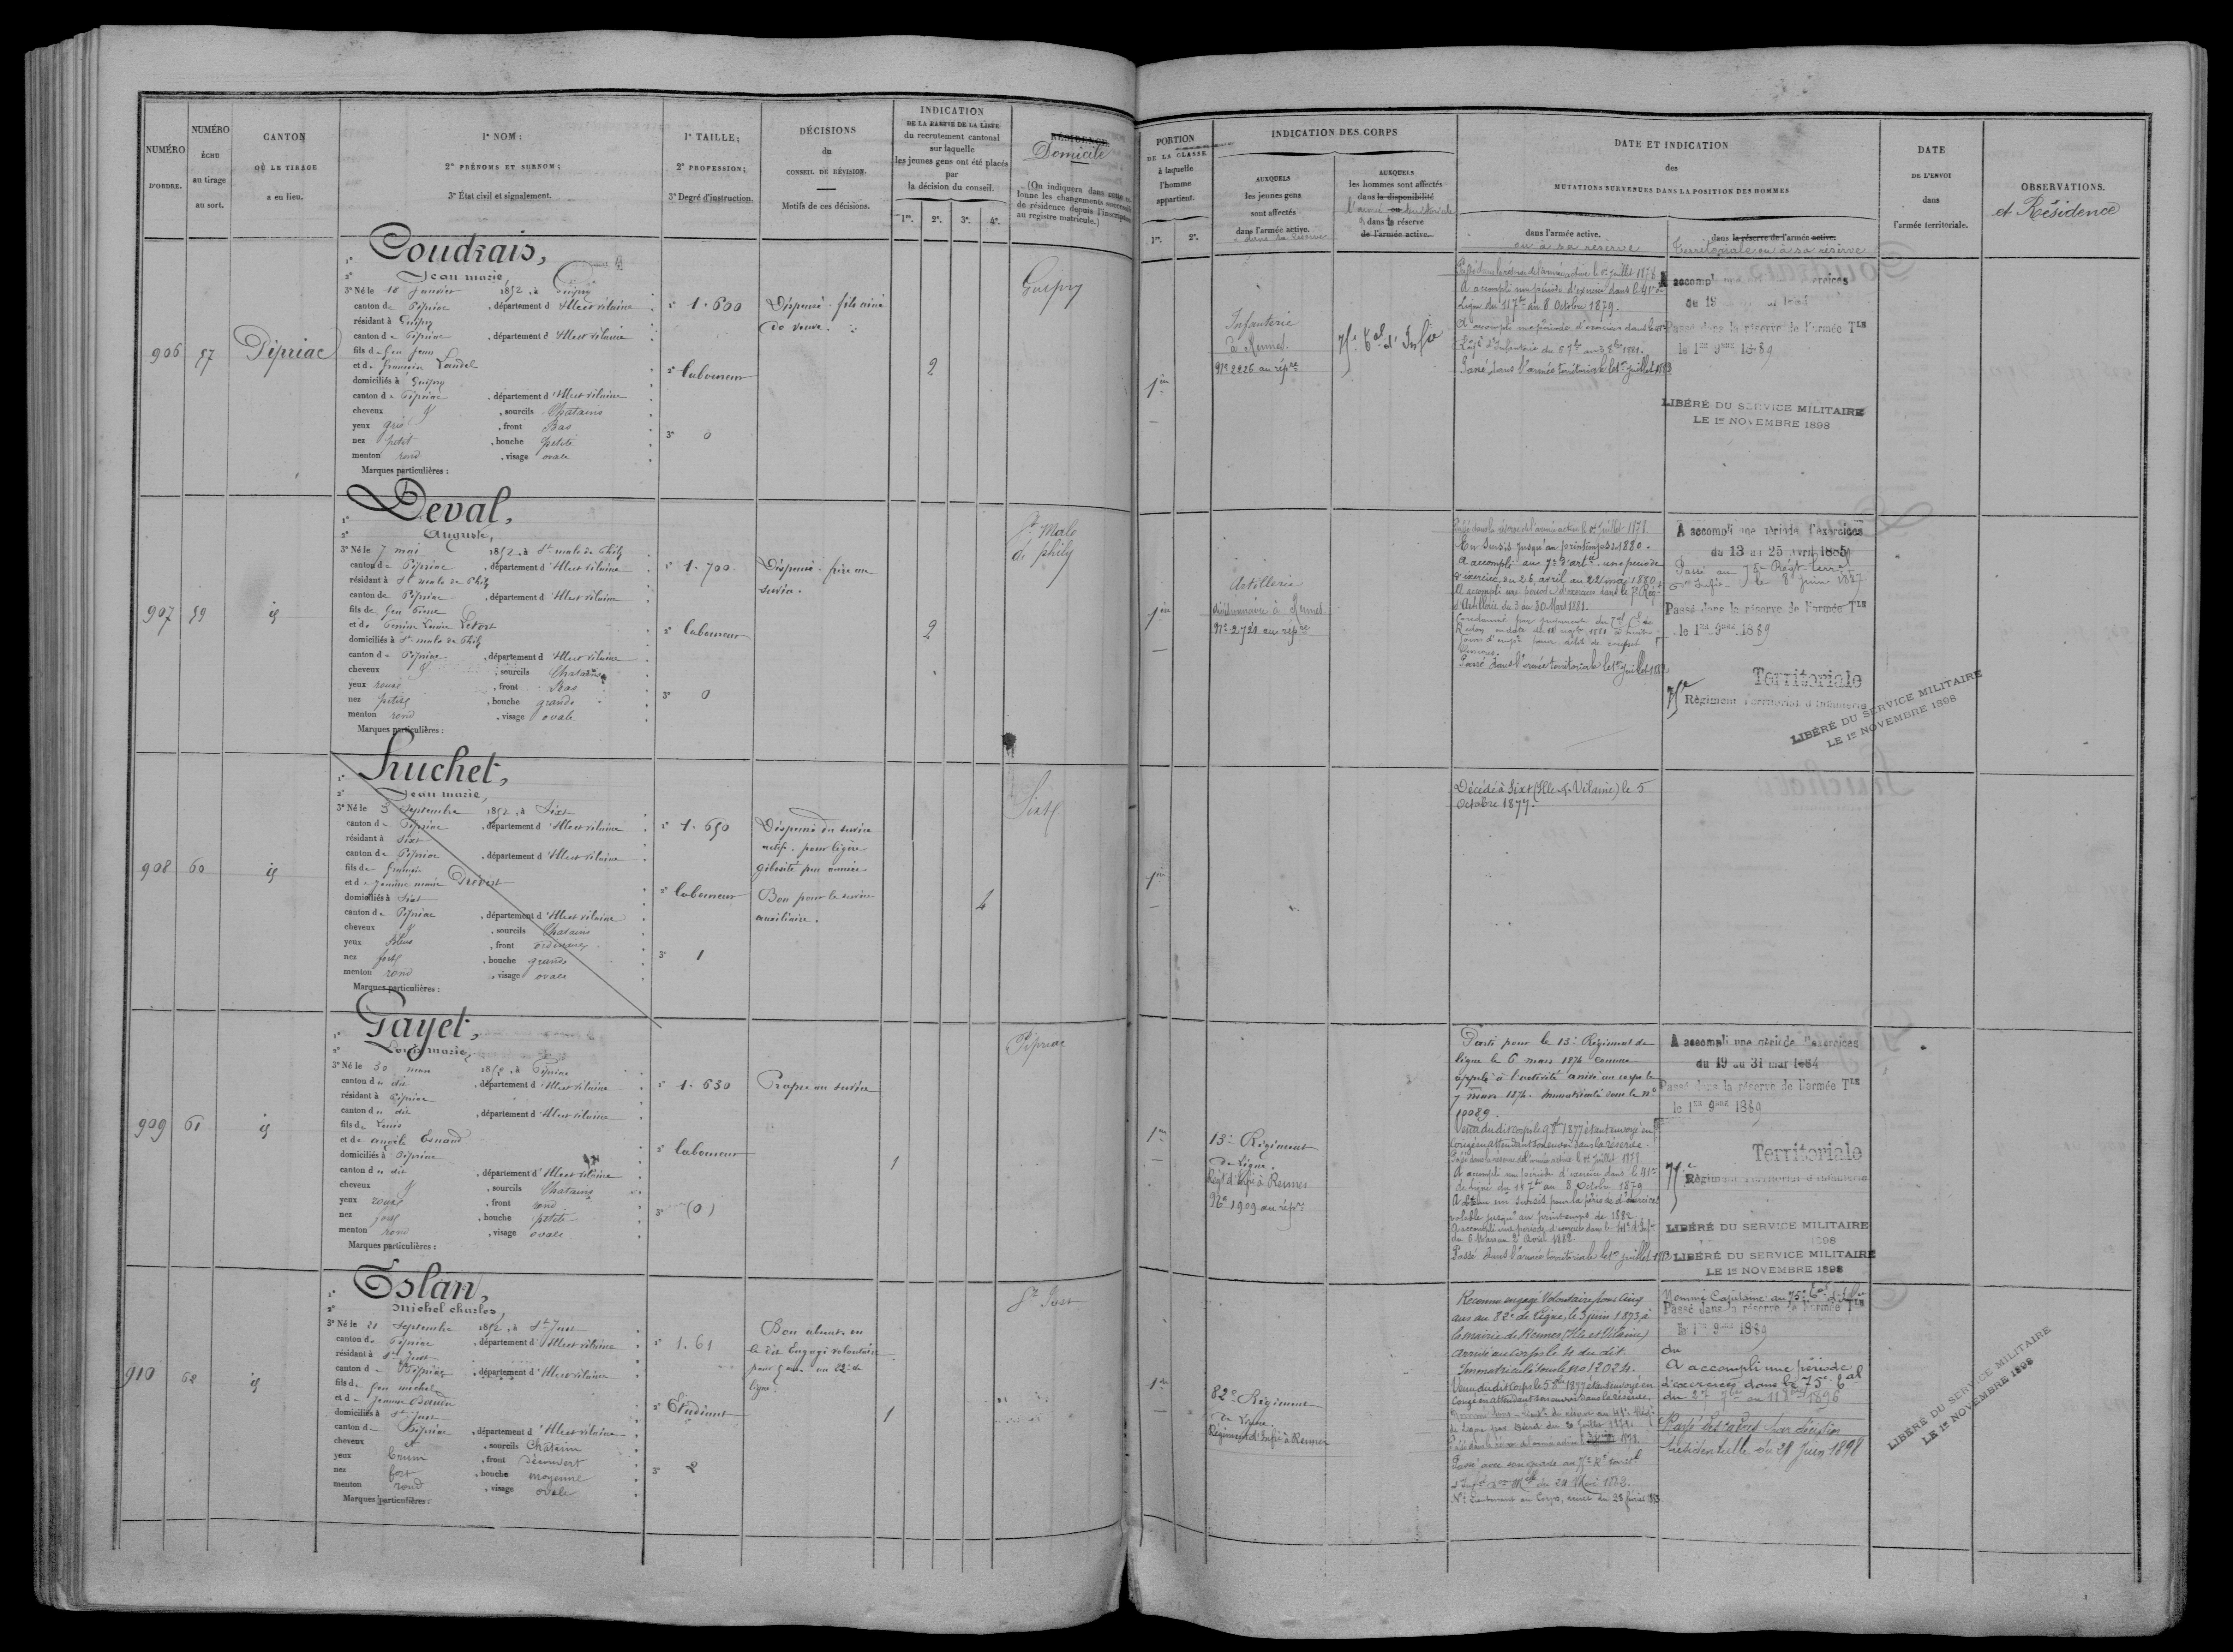 NUMÉRO
D'ORDRE.
NUMÉRO
ÉCHU
au tirage
au sort.
CANTON
OÙ LE TIRAGE
a eu lieu.
1º NOM;
2º PRÉNOMS ET SURNOM;
3º État civil et signalement.
1º TAILLE;
2º PROFESSION;
3º Degré d'instruction.
DÉCISIONS
du
CONSEIL DE RÉVISION.
Motifs de ces décisions.
INDICATION
DE LA PARTIE DE LA LISTE
du recrutement cantonal
sur laquelle
les jeunes gens ont été placés
par
la décision du conseil.
1re. 2e. 3e. 4e.
RÉSIDENCE
Domicile
(On indiquera dans cette co-
lonne les changements successifs
de résidence depuis l'inscription
au registre matricule.)
906
57
Pipriac
1º Coudrais,
2º Jean marie,
3º Né le 18 Janvier 1852, à Guipry
canton de Pipriac, département d'Ille et vilaine
résidant à Guipry
canton de Pipriac, département d'Ille et vilaine
fils de feu Jean
et de Landel
domiciliés à Guipry
canton de Pipriac, département d'Ille et vilaine
cheveux, sourcils Chatains
yeux gris, front Bas
nez petit, bouche petite
menton rond, visage ovale
Marques particulières:
1º 1.600
2º laboureur
3º 0
Dispensé. fils ainé
de veuve.
2
Guipry
907
59
id
1º Deval,
2º Auguste,
3º Né le 7 mai 1852, à St malo de Phily
canton de Pipriac, département d'Ille et vilaine
résidant à St malo de Phily
canton de Pipriac, département d'Ille et vilaine
fils de feu Pierre
et de
domiciliés à St malo de Phily
canton de Pipriac, département d'Ille et vilaine
cheveux, sourcils Chatains
yeux roux, front Bas
nez petit, bouche grande
menton rond, visage ovale
Marques particulières:
1º 1.700
2º laboureur
3º 0
Dispensé. frère au
service.
2
St Malo
de phily
908
60
id
1º Huchet,
2º Jean marie,
3º Né le 3 Septembre 1852, à Sixt
canton de Pipriac, département d'Ille et vilaine
résidant à Sixt
canton de Pipriac, département d'Ille et vilaine
fils de
et de Jeanne marie
domiciliés à Sixt
canton de Pipriac, département d'Ille et vilaine
cheveux, sourcils Chatains
yeux Bleus, front ordinaire
nez fort, bouche grande
menton rond, visage ovale
Marques particulières:
1º 1.650
2º laboureur
3º 1
Dispensé du service
actif. pour légère
gibosité
Bon pour le service
auxiliaire.
4
Sixt
909
61
id
1º Gayet,
2º Louis marie,
3º Né le 30 mars 1852, à Pipriac
canton du dit, département d'Ille et vilaine
résidant à Pipriac
canton du dit, département d'Ille et vilaine
fils de Louis
et de
domiciliés à Pipriac
canton du dit, département d'Ille et vilaine
cheveux, sourcils Chatains
yeux roux, front rond
nez fort, bouche petite
menton rond, visage ovale
Marques particulières:
1º 1.630
2º laboureur
3º (0)
Propre au service
1
Pipriac
910
62
id
1º Eslan,
2º Michel charles,
3º Né le 21 Septembre 1852, à St Just
canton de Pipriac, département d'Ille et vilaine
résidant à St Just
canton de Pipriac, département d'Ille et vilaine
fils de feu michel
et de Jeanne
domiciliés à St Just
canton de Pipriac, département d'Ille et vilaine
cheveux, sourcils Chatain
yeux brun, front découvert
nez fort, bouche moyenne
menton rond, visage ovale
Marques particulières:
1º 1.61
2º Etudiant
3º 2
Bon absent en
le dit Engagé volontaire
pour 5 ans au 82e de
ligne.
1
St Just
PORTION
DE LA CLASSE
à laquelle
l'homme
appartient.
1re. 2e.
INDICATION DES CORPS
AUXQUELS
les jeunes gens
sont affectés
dans l'armée active.
AUXQUELS
les hommes sont affectés
dans la disponibilité
dans la réserve
de l'armée active.
DATE ET INDICATION
des
MUTATIONS SURVENUES DANS LA POSITION DES HOMMES
dans l'armée active.
ou à sa réserve
dans la réserve de l'armée active.
Territoriale ou à sa réserve
DATE
DE L'ENVOI
dans
l'armée territoriale.
OBSERVATIONS.
et Résidence
1re
Infanterie
à Rennes.
Nº 2226 au répre
Passé dans la réserve de l'armée active le 1er Juillet 1878
A accompli une période d'exercice dans le 41e de
ligne du 11 7bre au 8 Octobre 1879.
A accompli une période d'exercice dans le
Passé dans l'armée territoriale le 1er Juillet 1883
Passé dans la réserve de l'armée Tle
le 1er 9bre 1889
LIBÉRÉ DU SERVICE MILITAIRE
LE 1er NOVEMBRE 1898
1re
Artillerie
divisionnaire à Rennes
Nº 2724 au répre
Passé dans la réserve de l'armée active le 1er Juillet 1878.
En sursis jusqu'au printemps de 1880.
A accompli au 7e d'artie une période
d'exercice du 26 avril au 22 mai 1880
A accompli une période d'exercices dans le 7e Régt
d'Artillerie du 3 au 30 Mars 1881.
Condamné par jugement du
Passé dans l'armée territoriale le 1er Juillet 1883
A accompli une période d'exercices
du 13 au 25 avril 1885
Passé au 75e Régt Terral
d'Infie le 8 Juin 1887
Passé dans la réserve de l'armée Tle
le 1er 9bre 1889
Territoriale
75e Régiment Territorial d'Infanterie
LIBÉRÉ DU SERVICE MILITAIRE
LE 1er NOVEMBRE 1898
1re
Décédé à Sixt (Ille-&-Vilaine) le 5
Octobre 1877.
1re
13e Régiment
de Ligne.
Régt d'Infie à Rennes
Nº 1909 au répre
Parti pour le 13e Régiment de
ligne le 6 mars 1874 comme
appelé à l'activité arrivé au corps le
7 mars 1874. Immatriculé sous le nº
10089.
Venu du dit corps le 9 1877 étant envoyé en
congé en attendant son envoi dans la réserve.
Passé dans la réserve de l'armée active le 1er Juillet 1878
A accompli une période d'exercice dans le 41e
de ligne du 11 7bre au 8 Octobre 1879
A obtenu un sursis pour la période d'exercices
valable jusqu'au printemps de 1882
A accompli une période d'exercice dans le 41e d'Infie
du 6 Mars au 2 Avril 1882
Passé dans l'armée territoriale le 1er Juillet 1883
A accompli une période d'exercices
du 19 au 31 mai 1884
Passé dans la réserve de l'armée Tle
le 1er 9bre 1889
Territoriale
75e Régiment Territorial d'Infanterie
LIBÉRÉ DU SERVICE MILITAIRE
1898
LIBÉRÉ DU SERVICE MILITAIRE
LE 1er NOVEMBRE 1898
1re
82e Régiment
de Ligne.
Régiment d'Infie à Rennes
Reconnu engagé Volontaire pour cinq
ans au 82e de Ligne, le 3 juin 1873, à
la mairie de Rennes, (Ille et Vilaine)
arrivé au Corps le 4 du dit.
Immatriculé sous le no 12024.
Venu du dit Corps le 5 1877 étant envoyé en
Congé en attendant son envoi dans la réserve.
Nommé Capitaine au 75e
Passé dans la réserve de l'armée Tle
le 1er 9bre 1889
du
A accompli une période
d'exercices dans le 75e
Rayé des cadres par décision
Présidentielle du 21 Juin 1898
LIBÉRÉ DU SERVICE MILITAIRE
LE 1er NOVEMBRE 1898